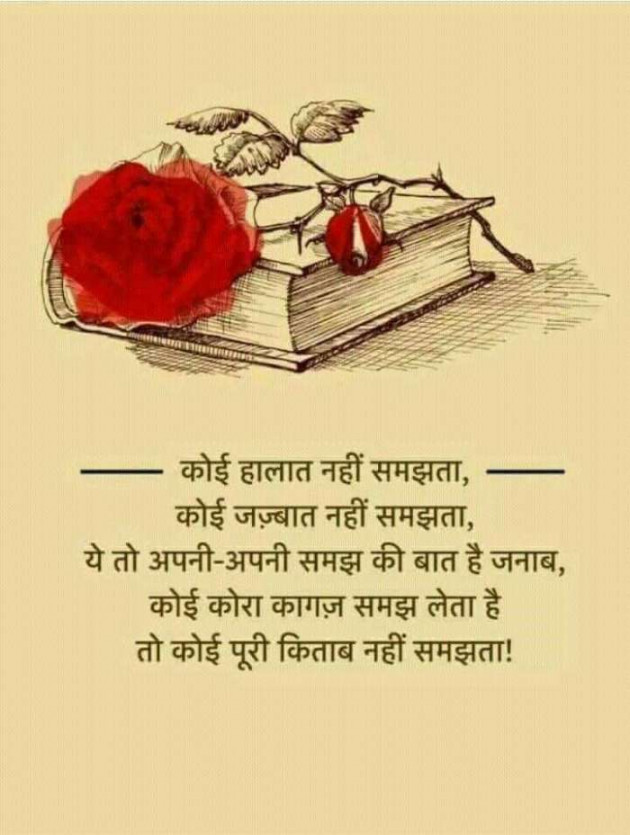 कोई हालात नहीं समझता,
कोई जज़्बात नहीं समझता,
ये तो अपनी-अपनी समझ की बात है जनाब,
कोई कोरा कागज़ समझ लेता है
तो कोई पूरी किताब नहीं समझता!